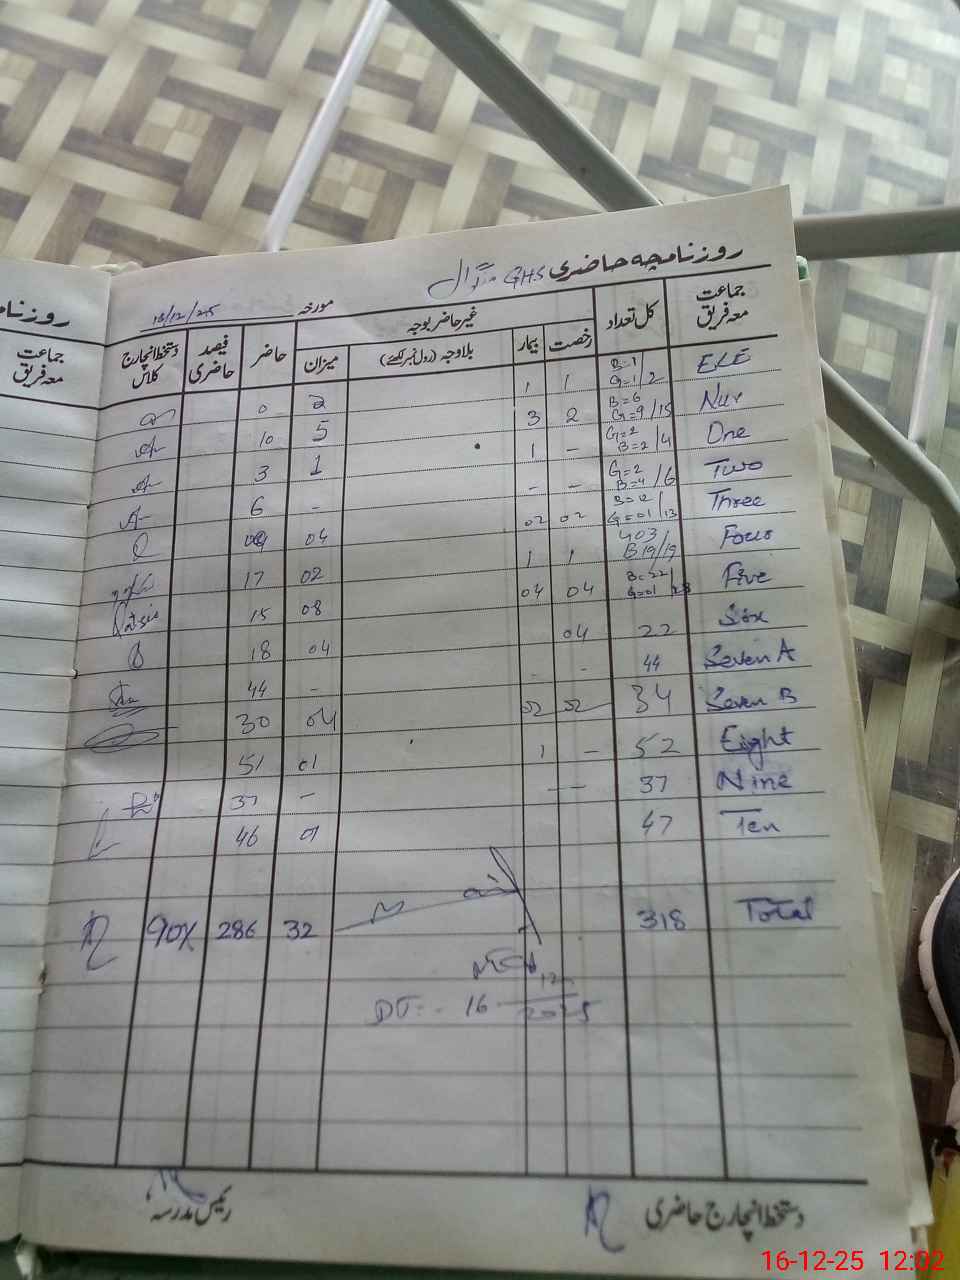 روزنامچہ حاضری GHS منگال
مورخہ 16/12/25
جماعت معہ فریق کل تعداد غیر حاضر بوجہ حاضر فیصد حاضری دستخط انچارج کلاس
رخصت بیمار بلاوجہ (رول نمبر لکھئے) میزان
ECE B=1 G=1/2 1 1 2 0
Nur B=6 G=9/15 2 3 5 10
One G=2 B=2/4 - 1 1 3
Two G=2 B=4/6 - - - 6
Three B=12/ G=01/13 02 02 04 09
Four B19/19 1 1 02 17
Five B=22/ G=01/23 04 04 08 15
Six 22 04 04 18
Seven A 44 - - - 44
Seven B 34 02 02 04 30
Eight 52 - 1 01 51
Nine 37 - - - 37
Ten 47 01 46
Total 318 32 286 90%
DT:- 16 12 2025
دستخط انچارج حاضری رئیس مدرسہ
روزنا
جماعت معہ فریق
16-12-25 12:02